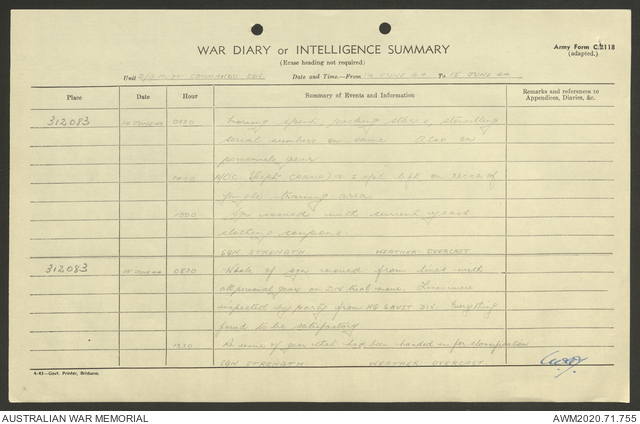 WAR DIARY or INTELLIGENCE SUMMARY
Army Form C.2118
(adapted).
(Erase heading not required)
Unit COMMANDO SQN Date and Time—From JUNE 44 To 15 JUNE 44
Place Date Hour Summary of Events and Information Remarks and references to
Appendices, Diaries, &c.
312083 14 JUNE 44 0830 Morning spent packing stores, stencilling
serial numbers on same. Also on
personal gear
1400 A/OC (Capt ) & Capt left on recce of
jungle training area
1500 Sqn issued with current years
clothing coupons.
SQN STRENGTH: WEATHER: OVERCAST
312083 15 JUNE 44 0830 Whole of sqn moved from lines with
all personal gear on Div trial move. Lines were
inspected by party from HQ 6 AUST DIV. Everything
found to be satisfactory
1330 of gear that had been handed in for classification
SQN STRENGTH: WEATHER: OVERCAST
4-43—Govt. Printer, Brisbane.
AUSTRALIAN WAR MEMORIAL AWM2020.71.755